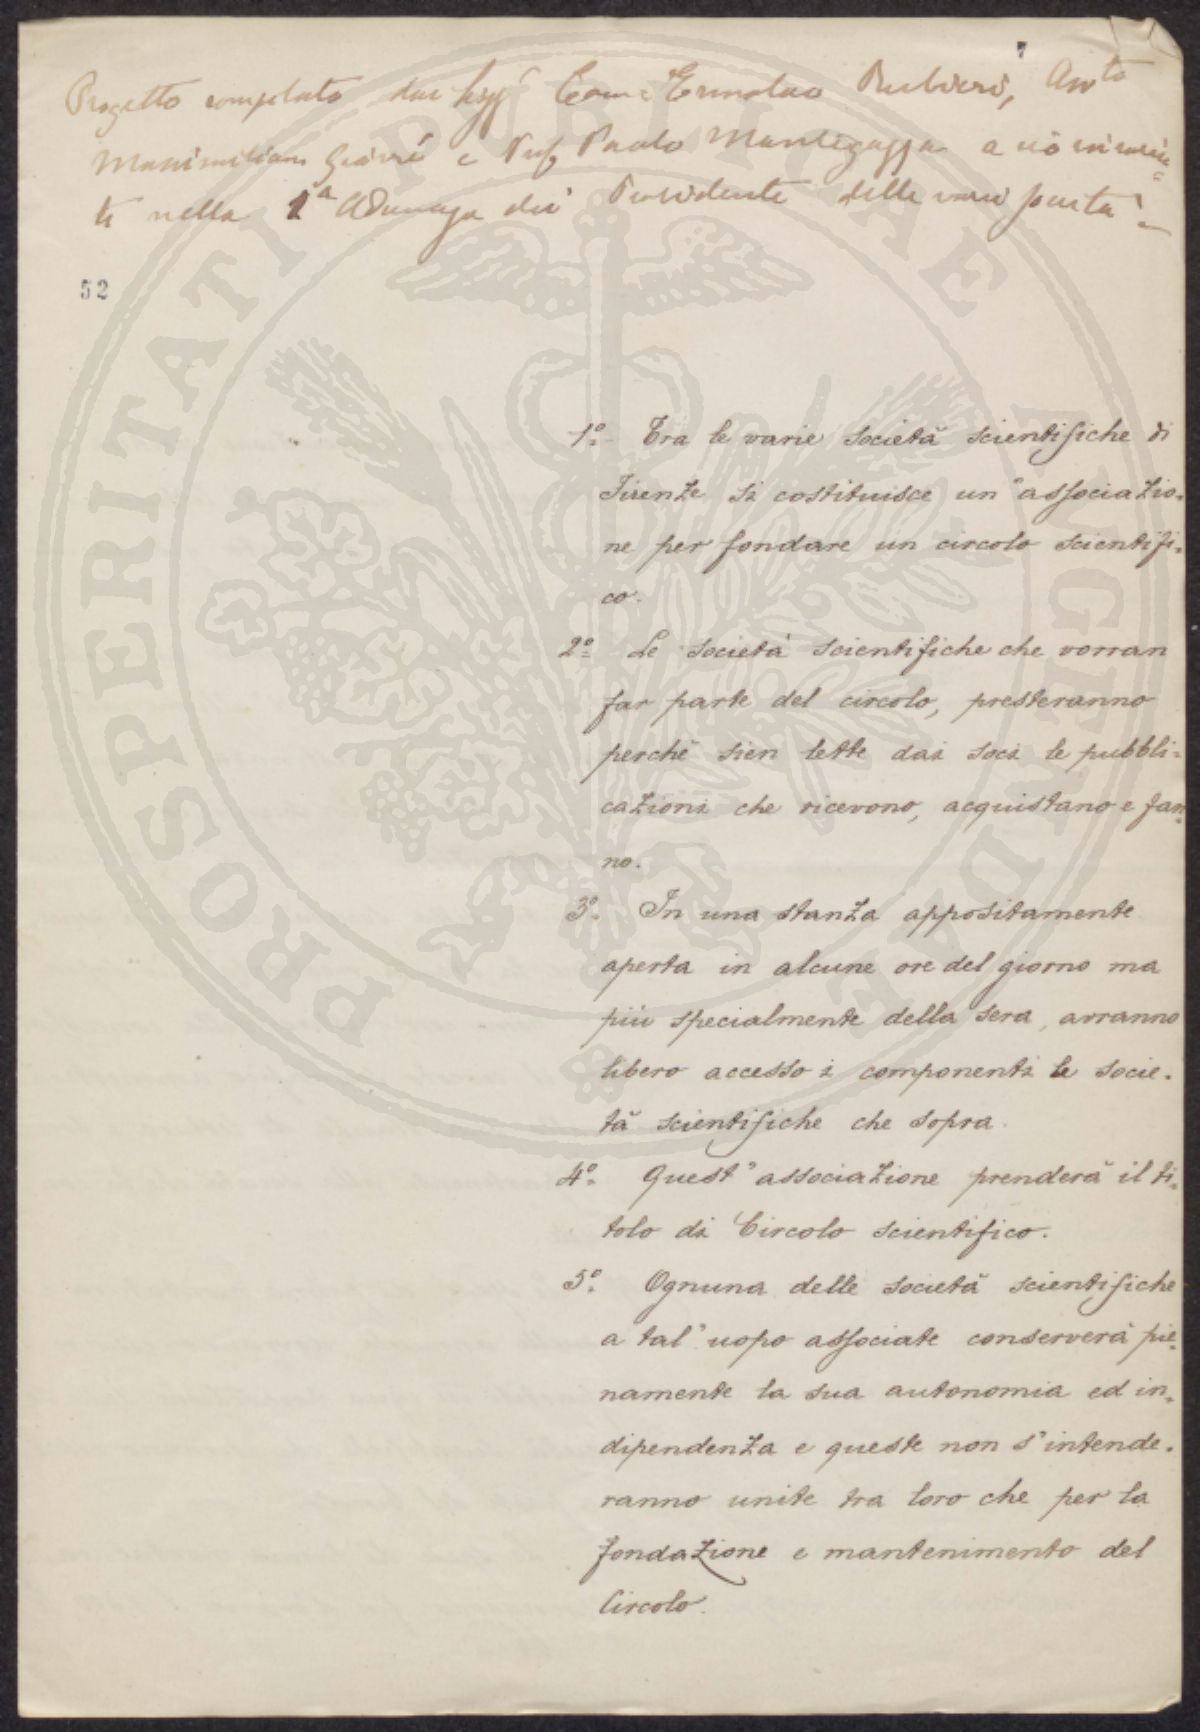 7
Progetto compilato dai Sigg.ri Com.e Ermolao Rubieri, Avv.to
Massimiliano Giarrè e Prof. Paolo Mantegazza a ciò incarica=
ti nella 1ª Adunanza dei Presidenti delle varie
52
1º. Tra le varie società scientifiche di
Firenze si costituisce un'associazio=
ne per fondare un circolo scientifi=
co.
2º. Le società scientifiche che vorran
far parte del circolo, presteranno
perchè sien lette dai soci le pubbli=
cazioni che ricevono, acquistano e fan=
no.
3º. In una stanza appositamente
aperta in alcune ore del giorno ma
più specialmente della sera, avranno
libero accesso i componenti le socie=
tà scientifiche che sopra.
4º. Quest'associazione prenderà il ti=
tolo di Circolo scientifico.
5º. Ognuna delle società scientifiche
a tal'uopo associate conserverà pie=
namente la sua autonomia ed in=
dipendenza e queste non s'intende=
ranno unite tra loro che per la
fondazione e mantenimento del
Circolo.
PROSPERITATI PUBLICAE AUGENDAE